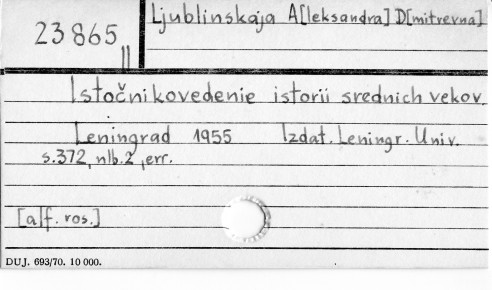 23 865 II
Ljublinskaja A[leksandra] D[mitrevna]
Istočnikovedenie istorii srednich vekov.
Leningrad 1955 Izdat. Leningr. Univ.
s.372, nlb.2, err.
[alf. ros.]
DUJ. 693/70. 10 000.